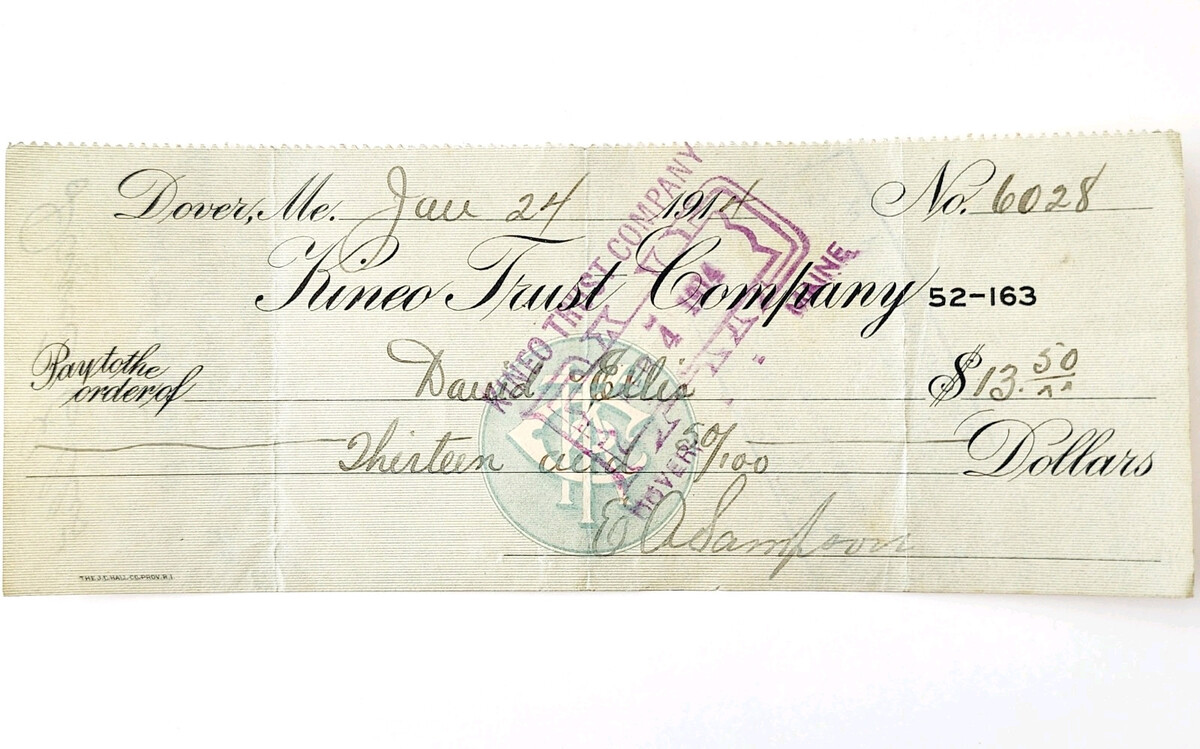 Dover, Me. Jan 24 1914 No. 6028
Kineo Trust Company 52-163
Pay to the order of David Ellis $13.50
Thirteen and 50/100 Dollars
E A Sampson
THE J.C. HALL CO. PROV. R.I.
KINEO TRUST COMPANY
4 1914
DOVER MAINE